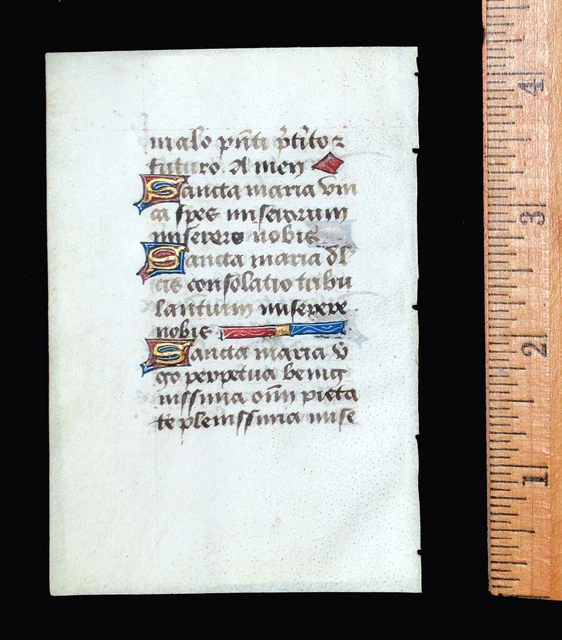 malo pn̄ti p̄tito ꝛ
futuro. Amen
Sancta maria vni
ca spes miserorum
miserere nobis
Sancta maria dl̄
cis consolatio tribu
lantium miserere
nobis
Sancta maria v̄
go perpetua benig
nissima om̄i pieta
te plenissima mise
4
3
2
1